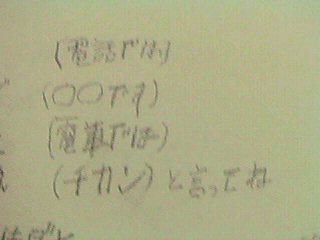 (電話では)
(〇〇です)
(電車では)
(チカン)と言ってね